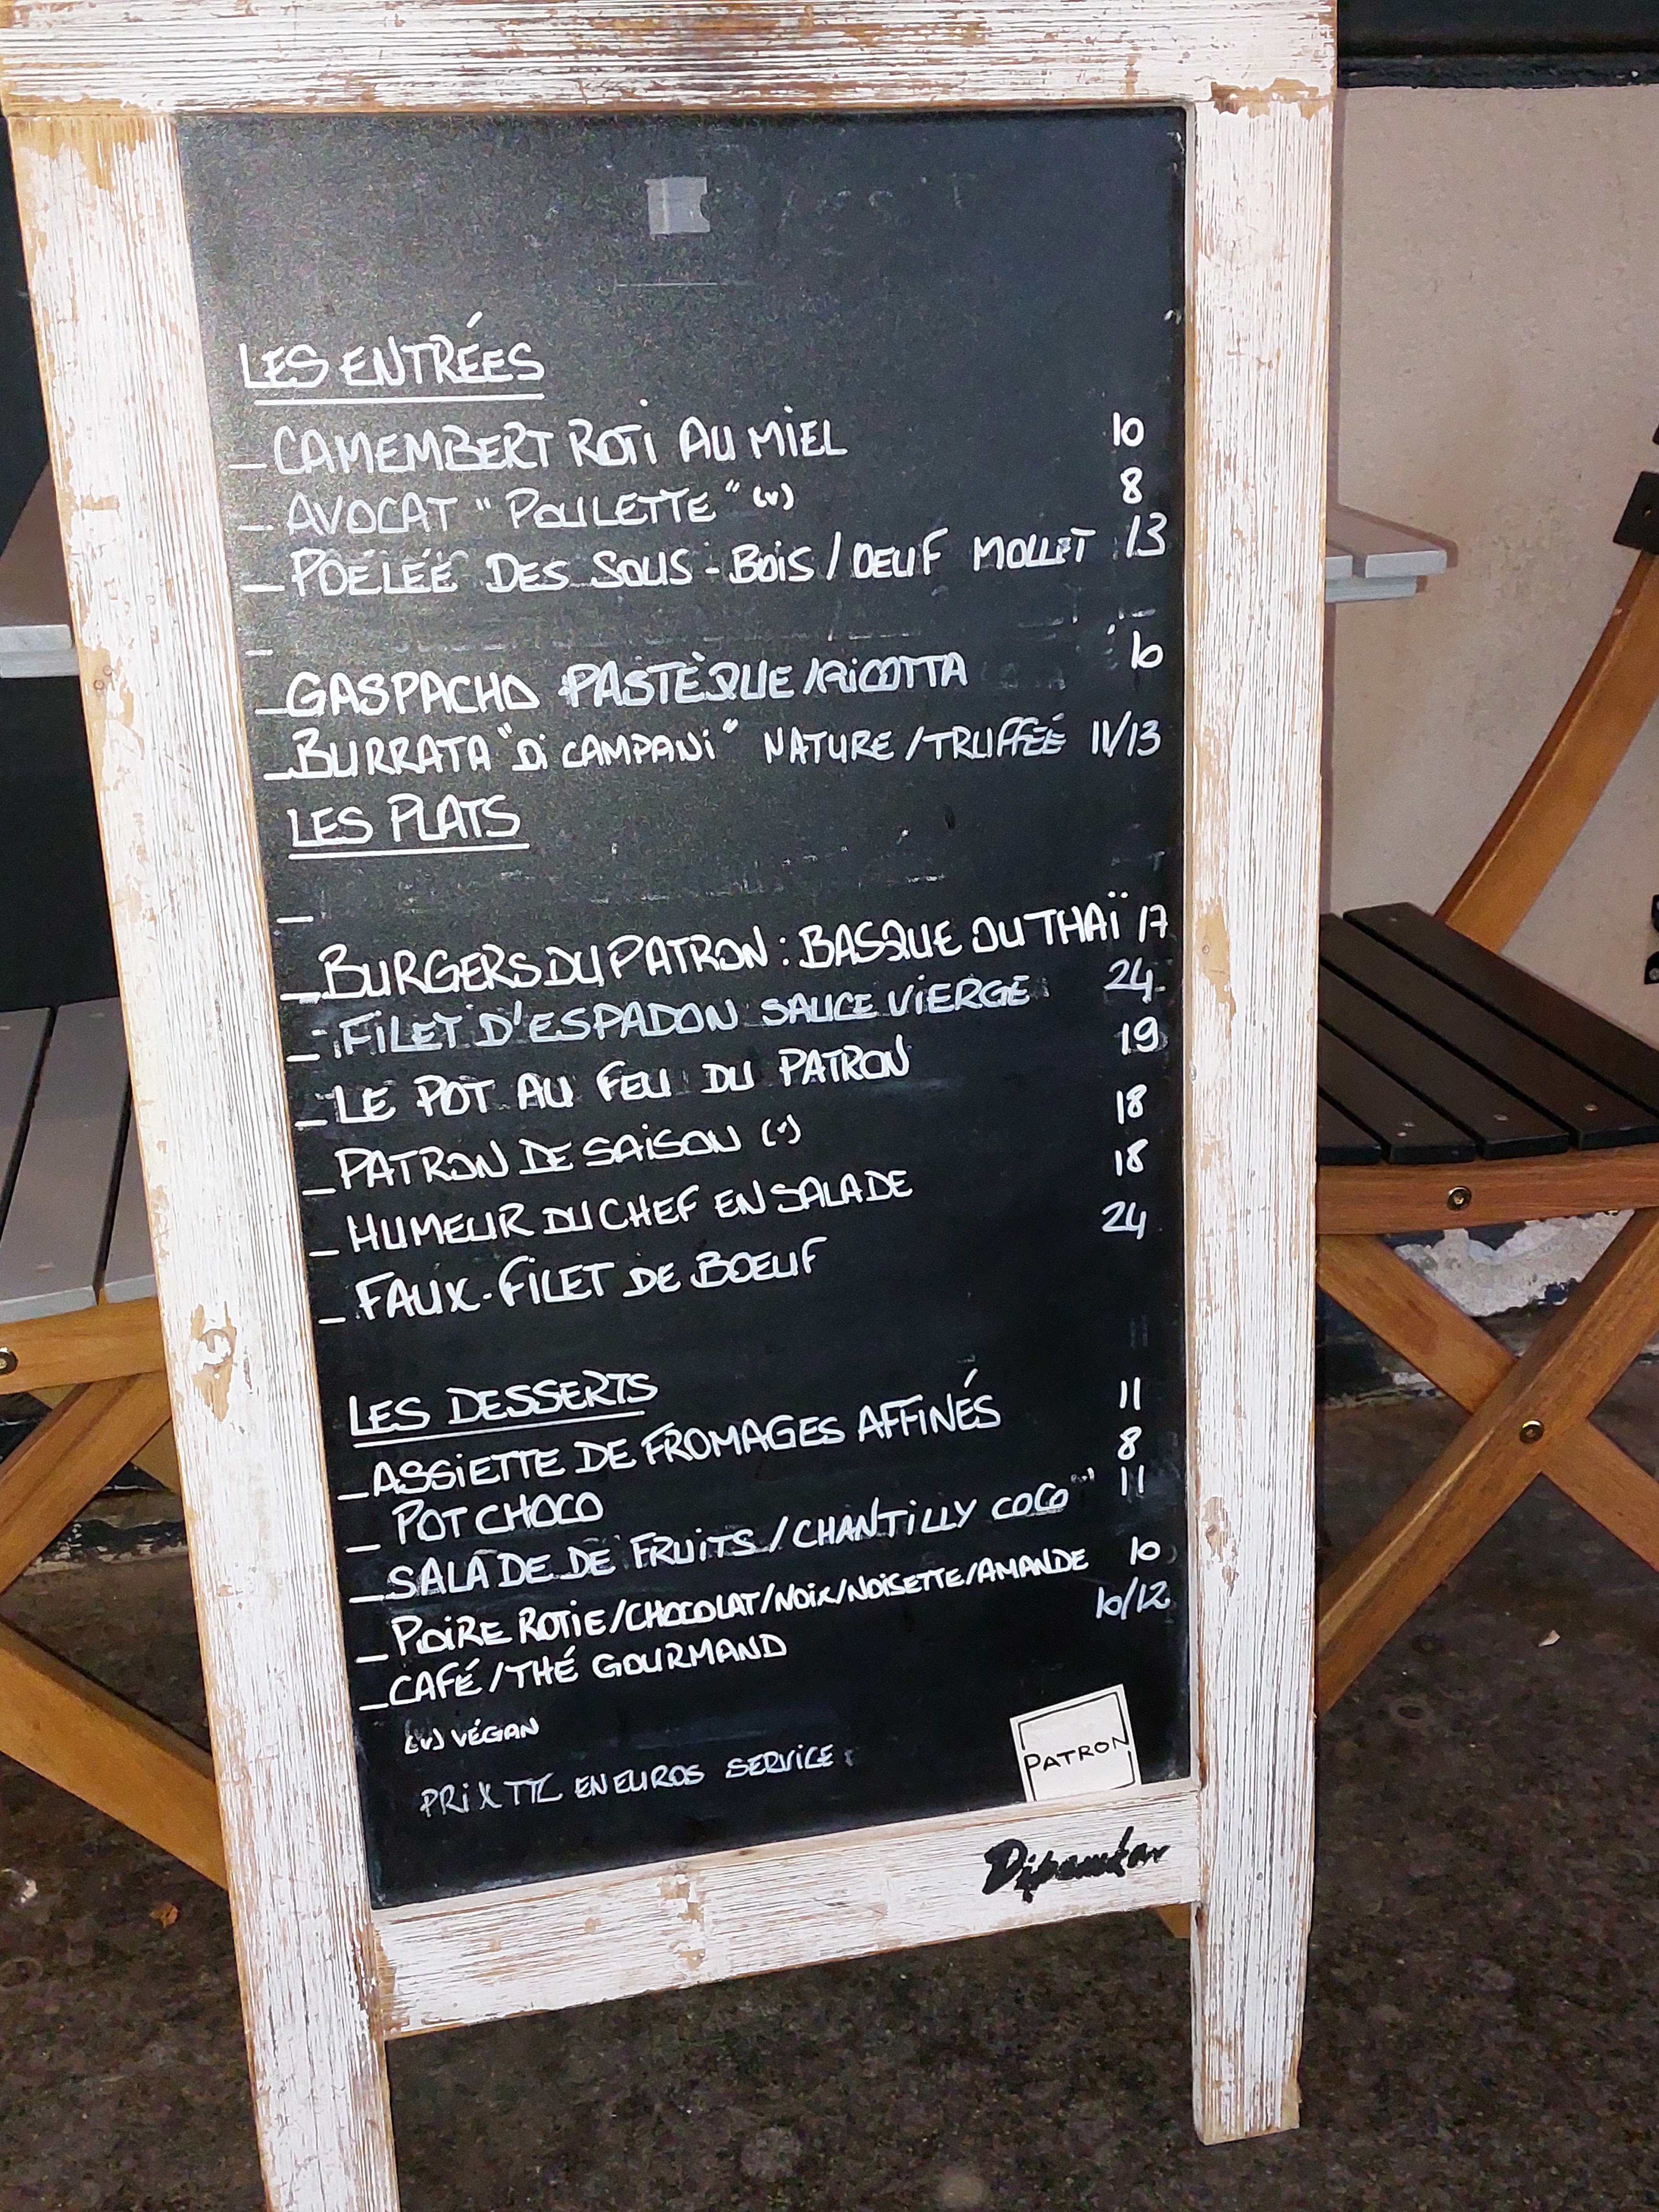 LES ENTRÉES
_ CAMEMBERT ROTI AU MIEL 10
_ AVOCAT "POULETTE" (v) 8
_ POÊLÉE DES SOUS-BOIS / OEUF MOLLET 13
_
_ GASPACHO PASTÈQUE/RICOTTA 10
_ BURRATA "Di CAMPANi" NATURE / TRUFFÉE 11/13
LES PLATS
_
_ BURGERS DU PATRON : BASQUE OU THAÏ 17
_ FILET D'ESPADON SAUCE VIERGE 24
_ LE POT AU FEU DU PATRON 19
_ PATRON DE SAISON (v) 18
_ HUMEUR DU CHEF EN SALADE 18
_ FAUX-FILET DE BOEUF 24
LES DESSERTS
_ ASSIETTE DE FROMAGES AFFINÉS 11
_ POT CHOCO 8
_ SALADE DE FRUITS / CHANTILLY COCO 11
_ POIRE ROTIE/CHOCOLAT/NOIX/NOISETTE/AMANDE 10
_ CAFÉ / THÉ GOURMAND 10/12
(v) VÉGAN
PRIX TTC EN EUROS SERVICE
PATRON